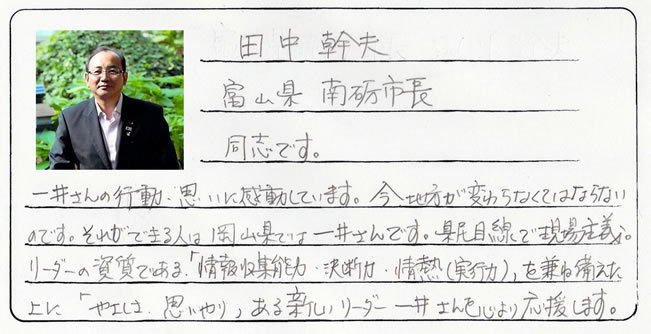 田中幹夫
富山県 南砺市長
同志です。
一井さんの行動・思いに感動しています。今地方が変わらなくてはならない
のです。それができる人は岡山県では一井さんです。県民目線で現場主義。
リーダーの資質である、「情報収集能力・決断力・情熱(実行力)」を兼ね備えた
上に「やさしさ・思いやり」ある新しいリーダー一井さんを心より応援します。